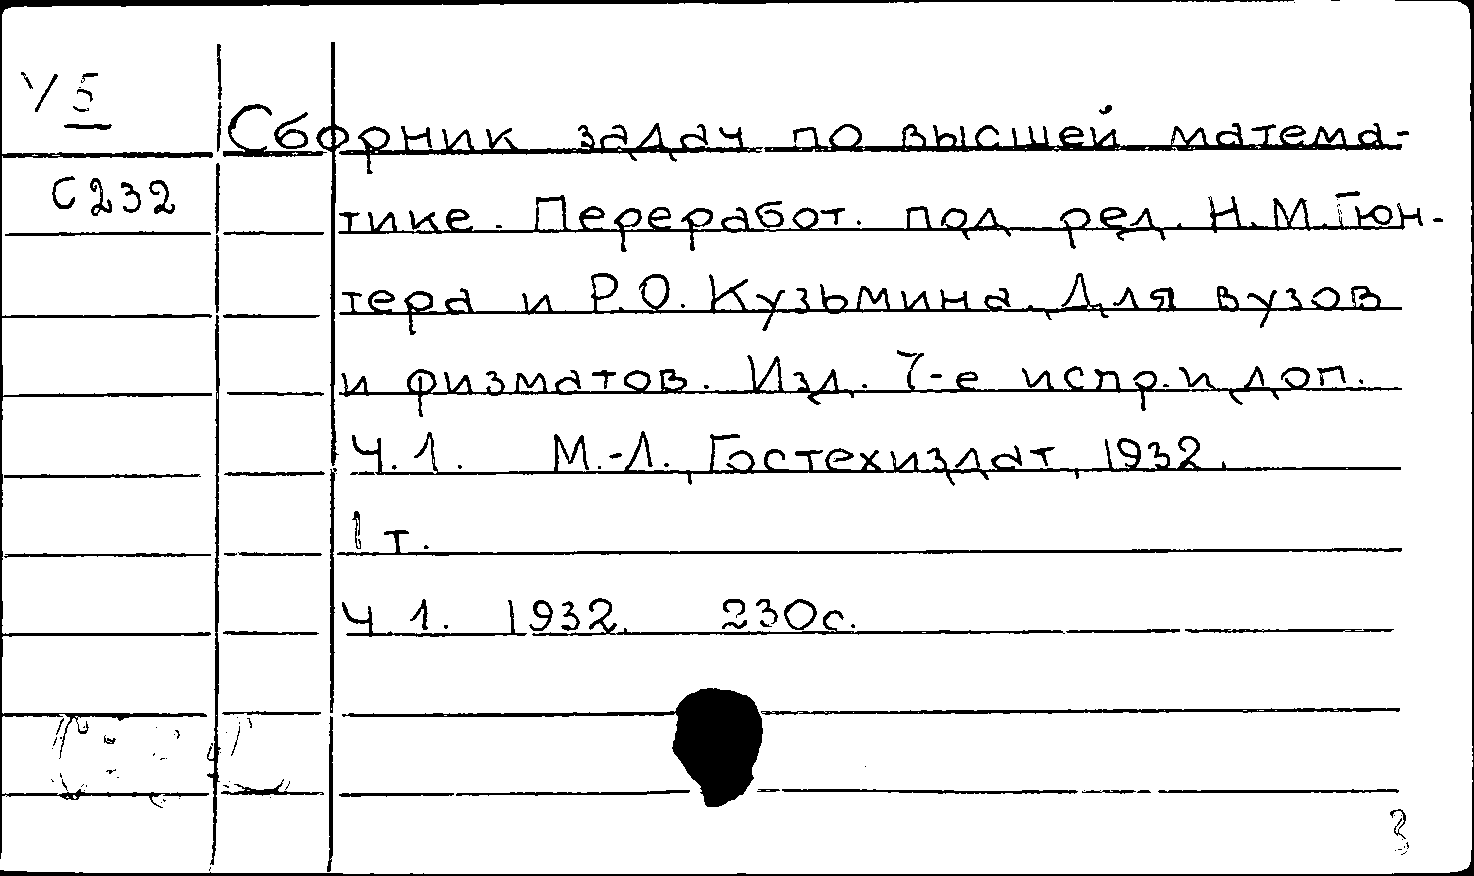 У5
Сборник задач по высшей матема-
С232
тике. Переработ. под ред. Н.М.Гюн-
тера и Р.О.Кузьмина. Для вузов
и физматов. Изд. 7-е испр.и доп.
Ч.1. М.-Л., Гостехиздат, 1932.
1 т.
Ч 1. 1932. 230с.
3